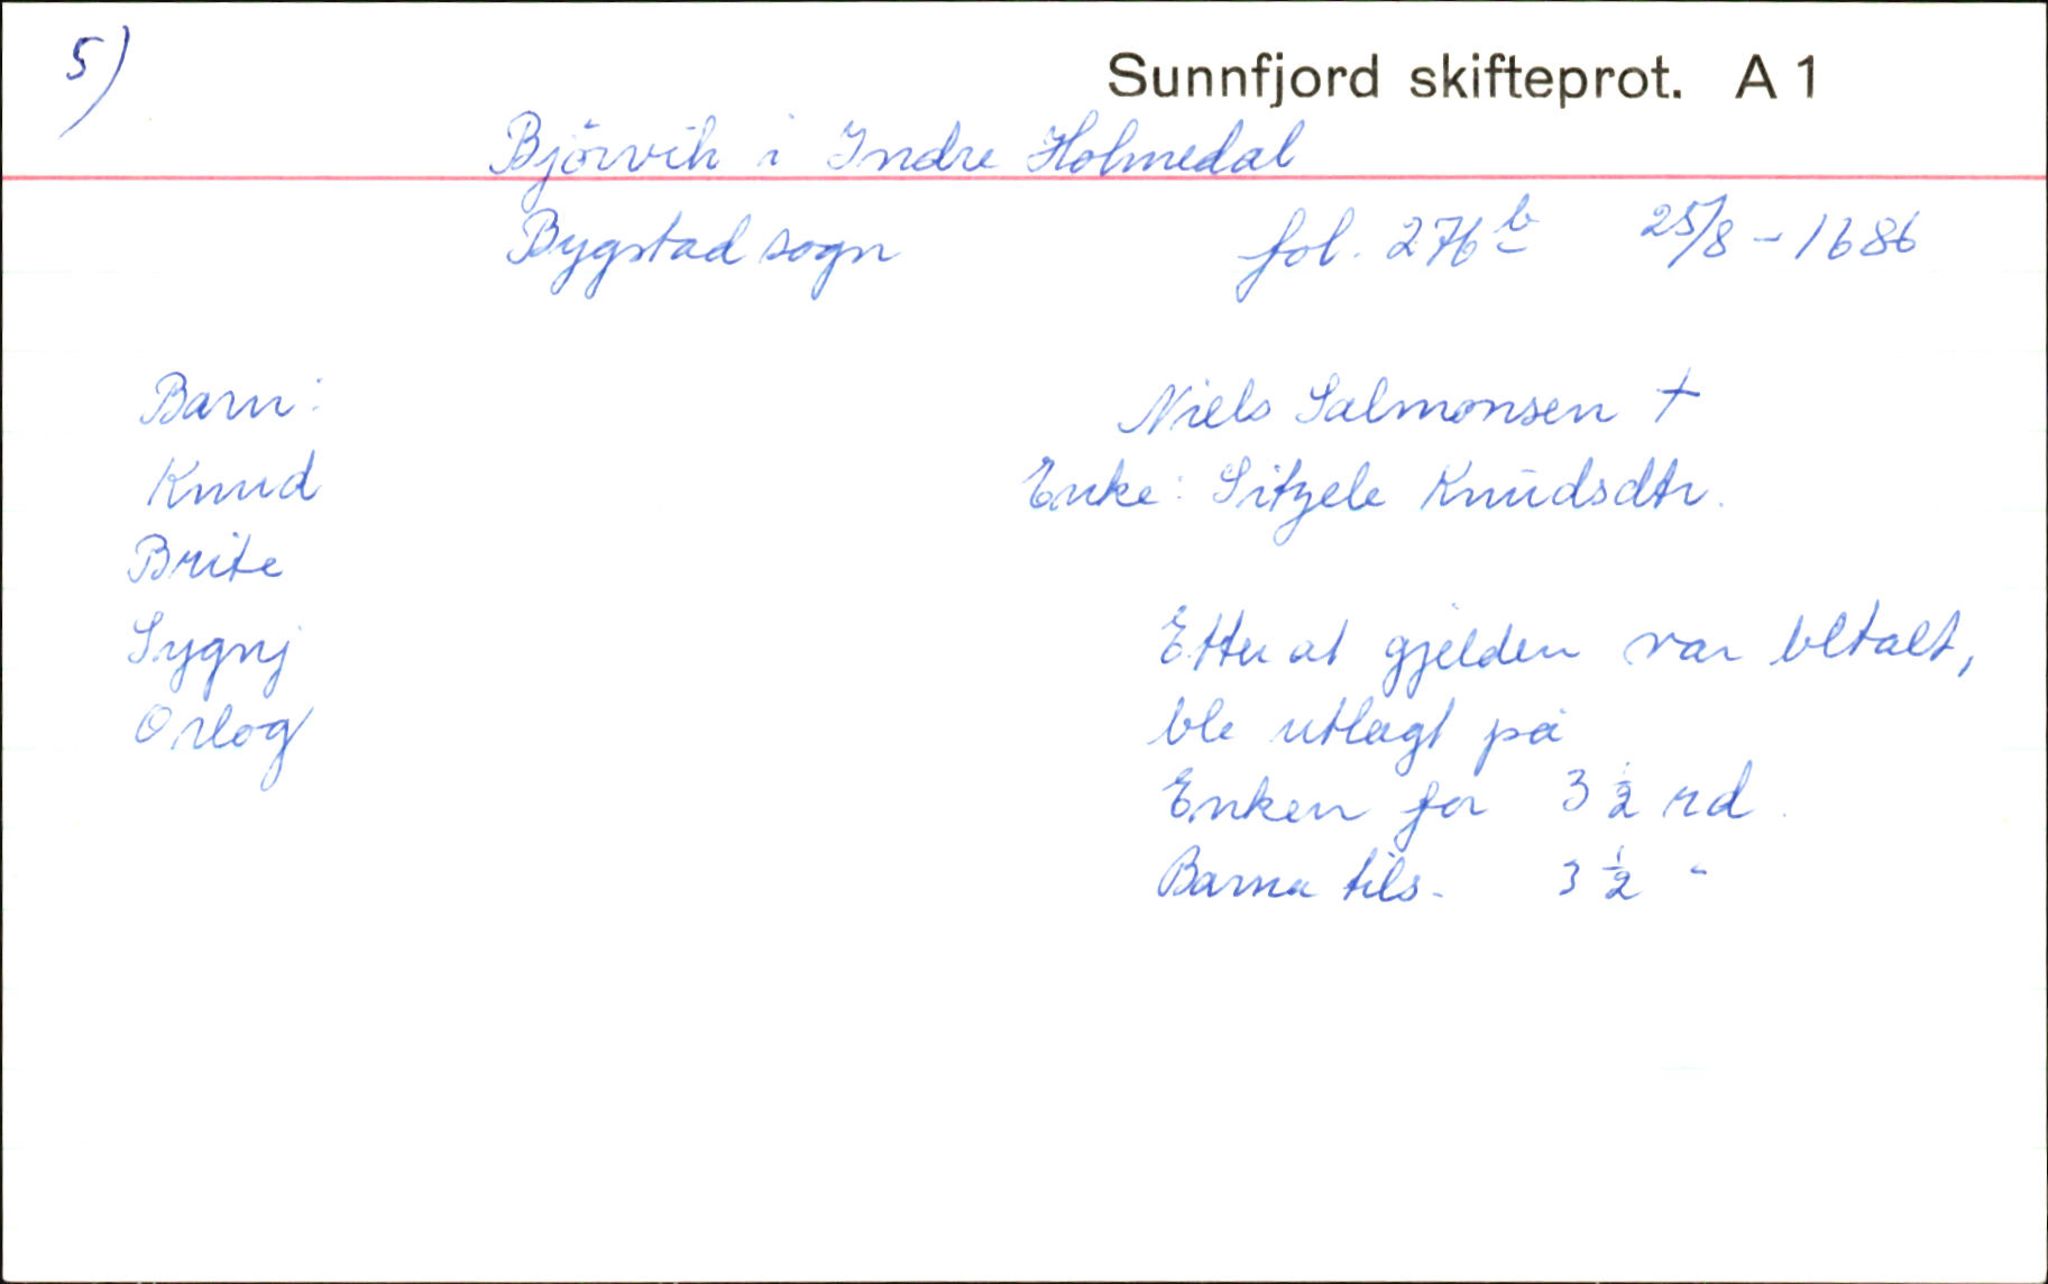 5)
Sunnfjord skifteprot. A 1
Bjørvik i Indre Holmedal
Bygstad sogn fol. 276 b 25/8 - 1686
Barn: Niels Salmonsen +
Knud Enke: Sitzele Knudsdtr.
Brite
Sygnj Etter at gjelden var betalt,
Orlog ble utlagt på
Enken for 3 ½ rd.
Barna tils. 3 ½ "